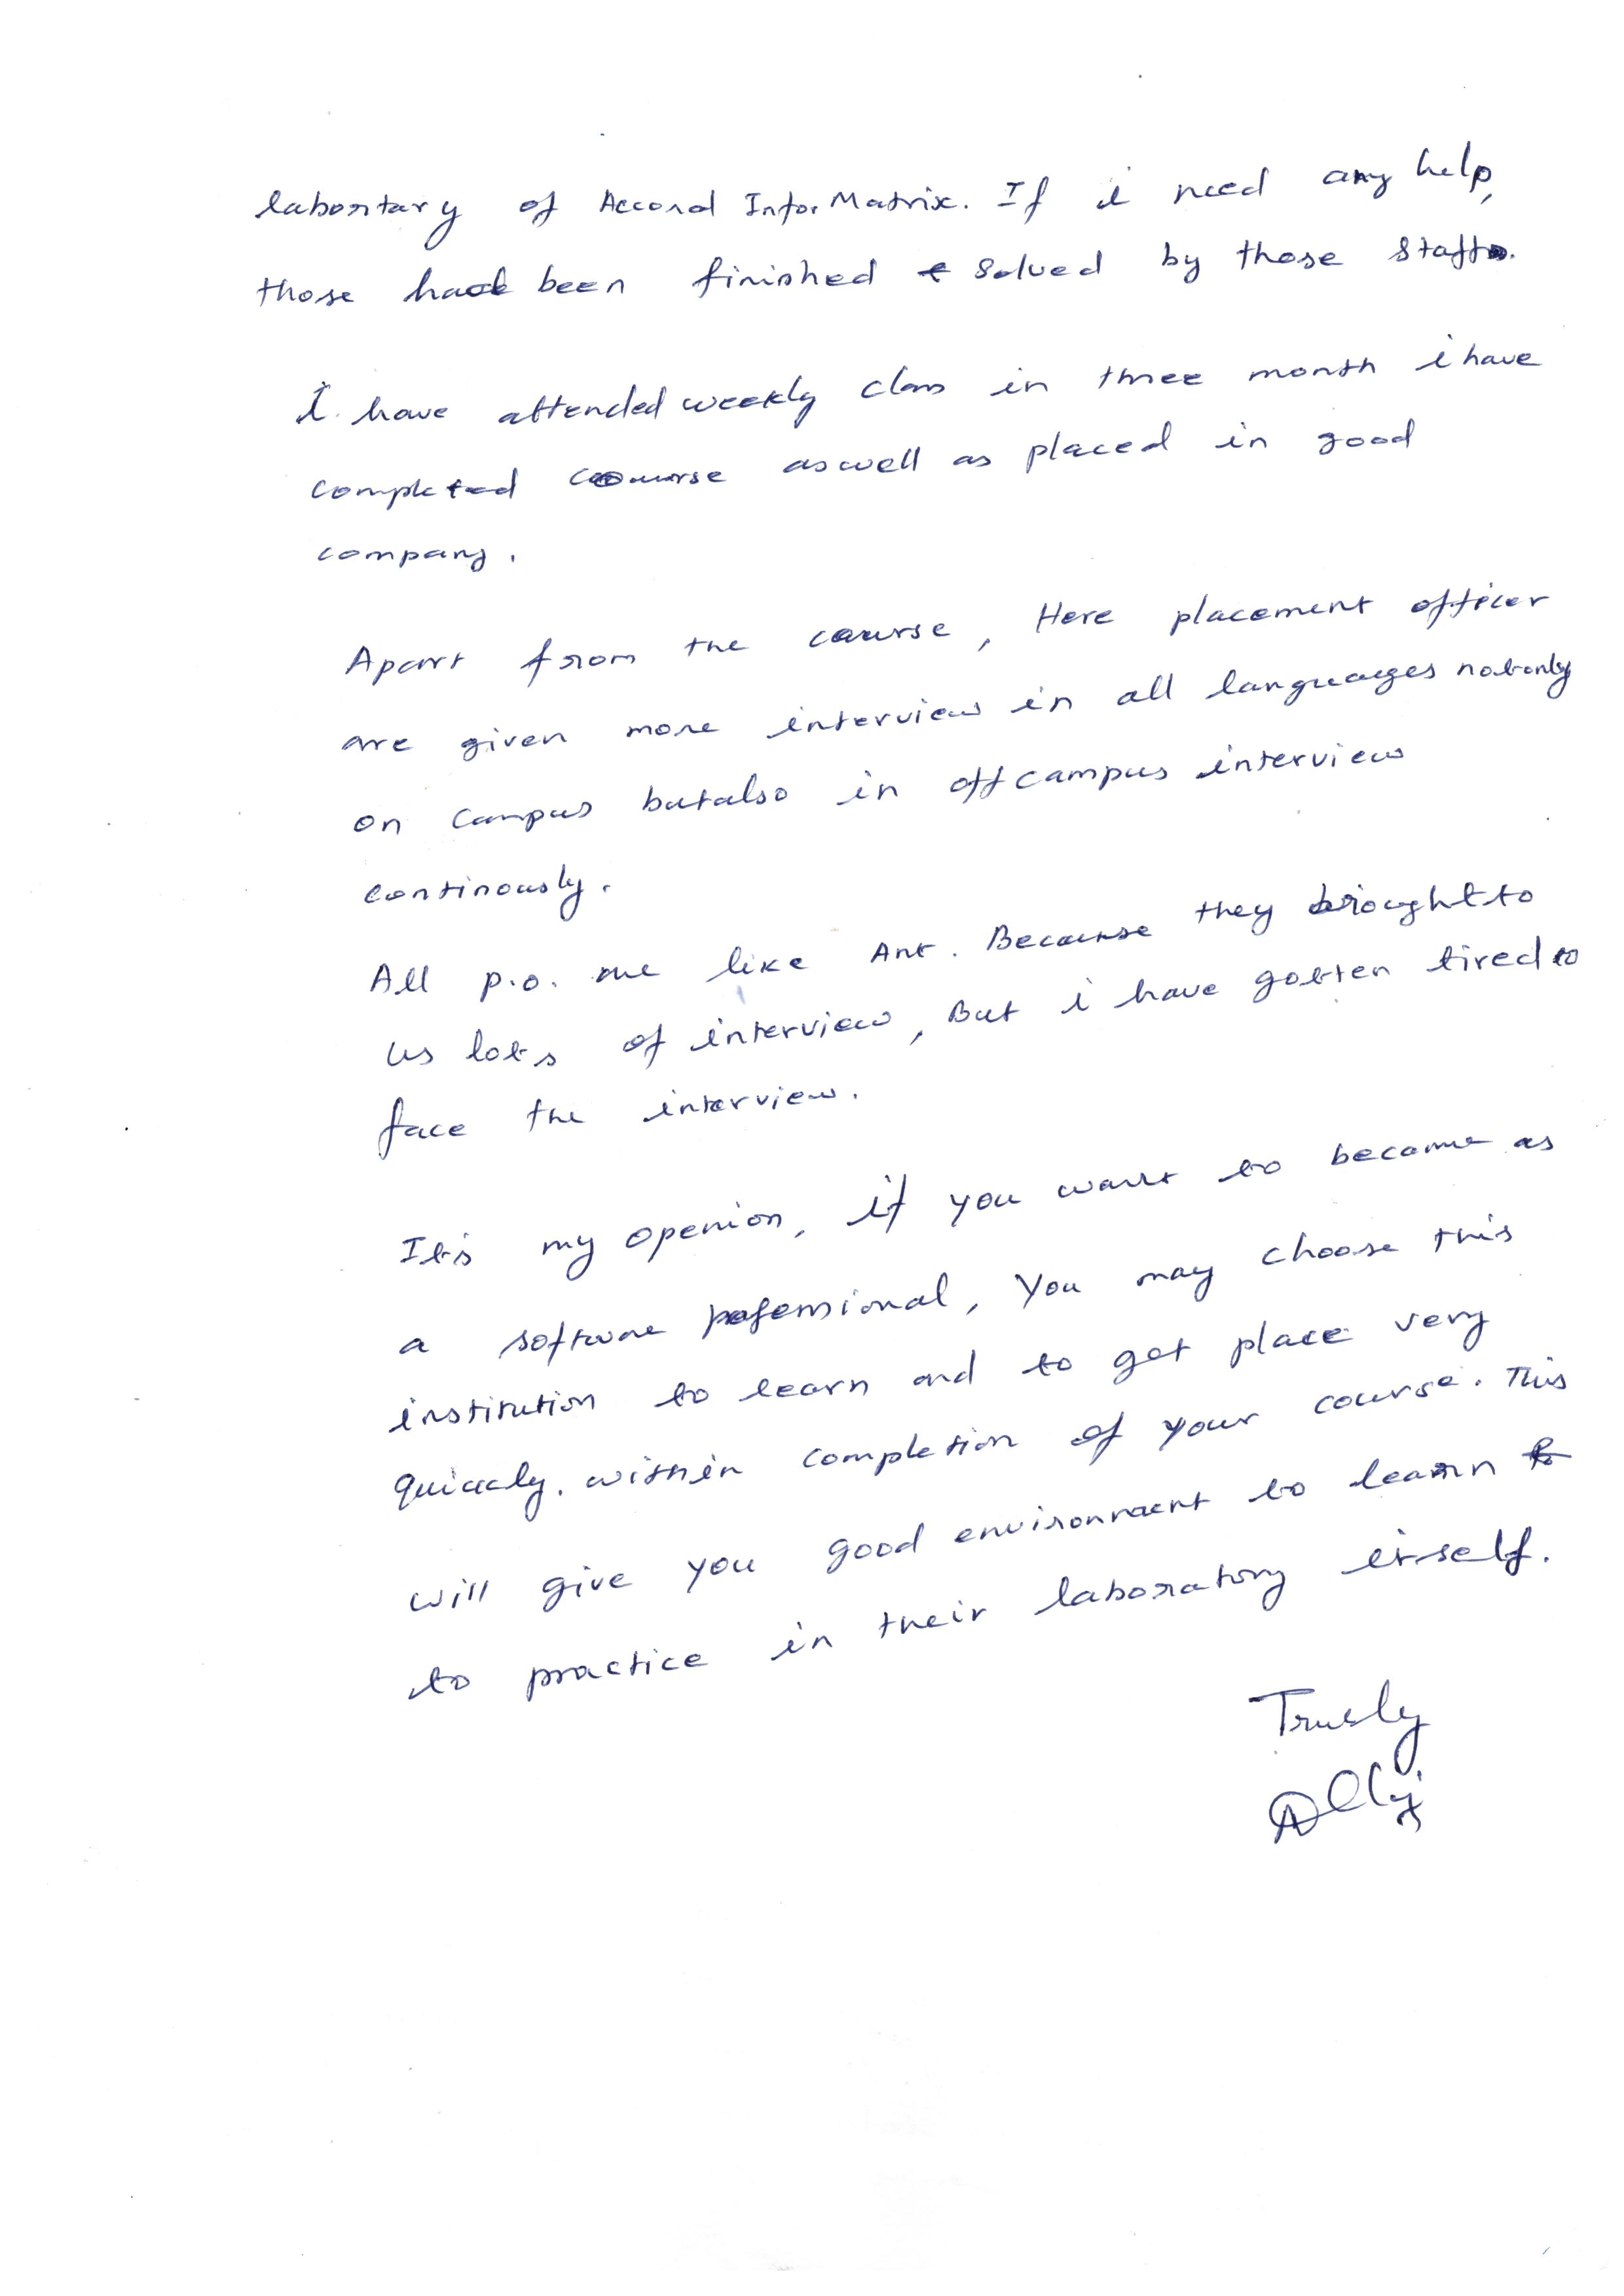 labortary of Accord Info. Matrix. If i need any help,
those had been finished & solved by those staffs.
I have attended weekly class in three month i have
completed course aswell as placed in good
company.
Apart from the course, Here placement officer
are given more interview in all languages notonly
on campus butalso in offcampus interview
continously.
All p.o. are like Ant. Because they brought to
us lots of interview, But i have gotten tired to
face the interview.
It's my openion, if you want to became as
a software pofessional, You may choose this
institution to learn and to get place very
quickly. within completion of your course. This
will give you good environment to learn &
to practice in their laboratory itself.
Truely